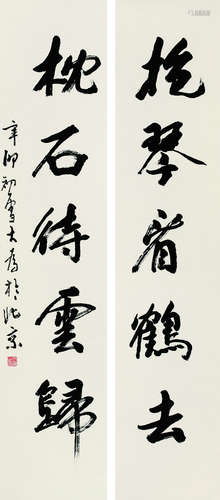 抱琴看鹤去
枕石待雲歸
辛卯初雪大為於北京